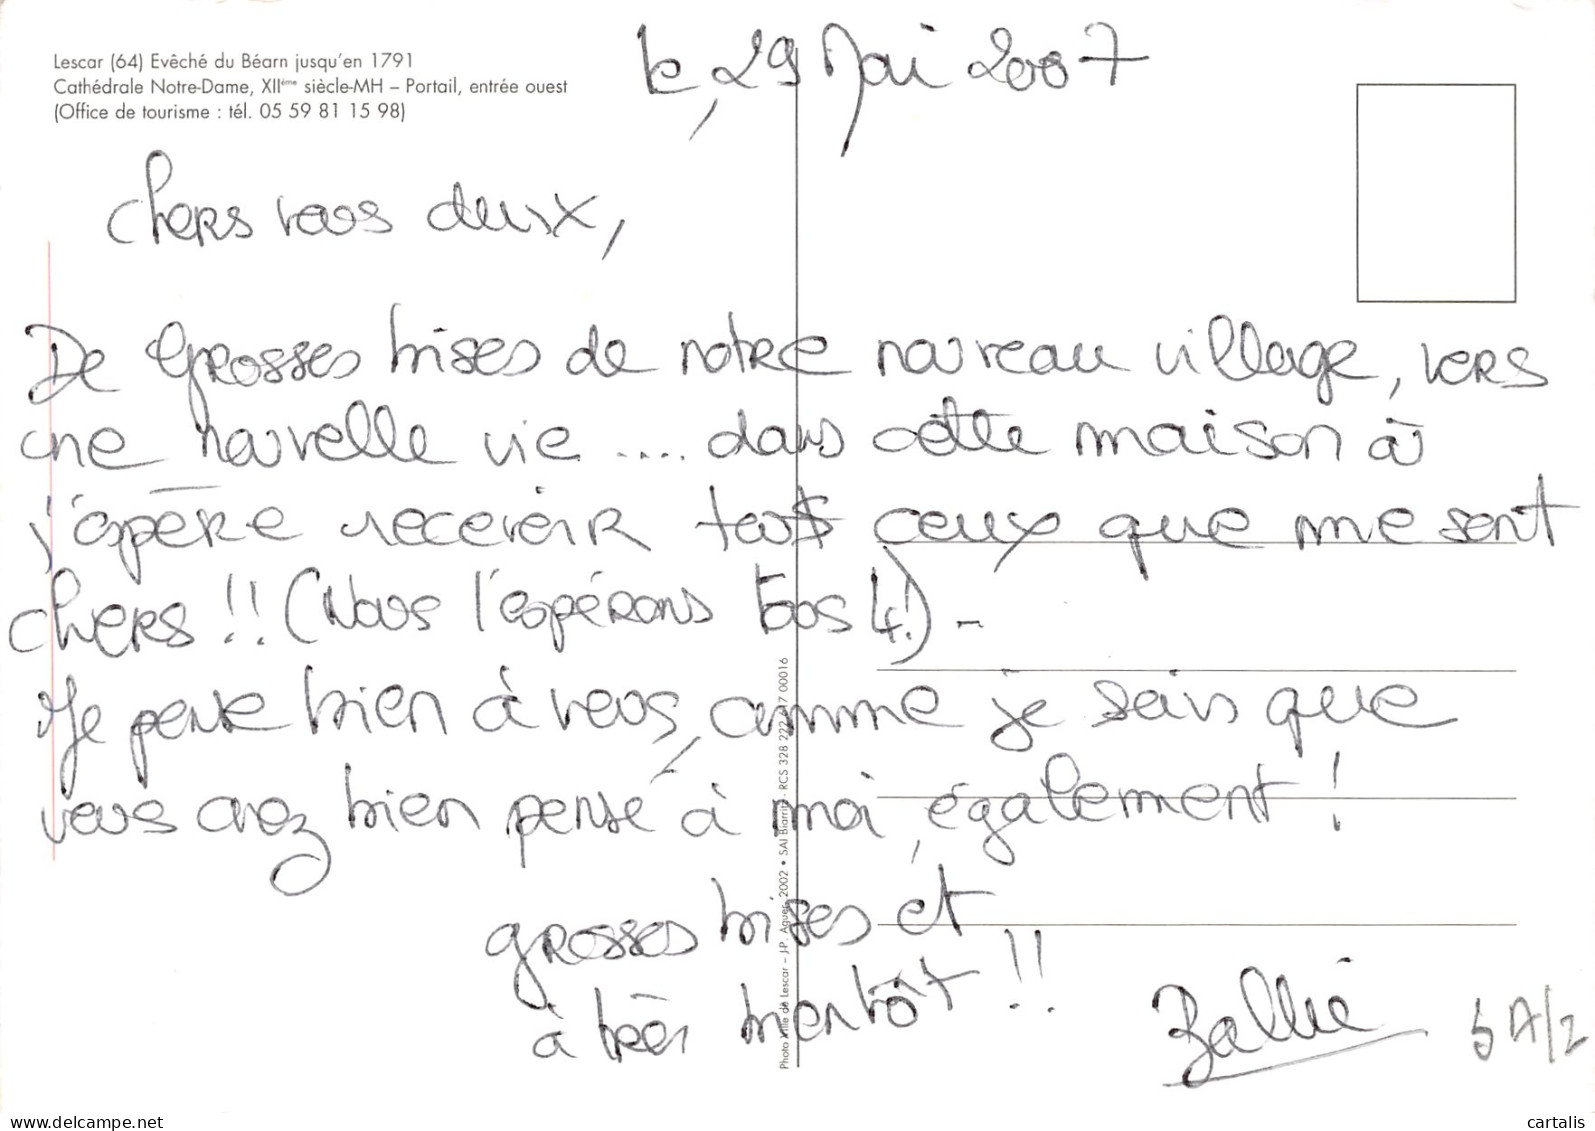 Lescar (64) Evêché du Béarn jusqu'en 1791
Cathédrale Notre-Dame, XIIème siècle-MH – Portail, entrée ouest
(Office de tourisme : tél. 05 59 81 15 98)
le, 29 Mai 2007
Chers vous deux,
De Grosses bises de notre nouveau village, vers
une nouvelle vie .... dans cette maison où
j'espère recevoir tous ceux que me sont
chers !! (Nous l'espérons tous 4!) -
Je pense bien à vous, comme je sais que
vous avez bien pensé à moi, également !
grosses bises et
à très bientôt !!
5A/2
Photo Ville de Lescar – J.P. 2002 • SAI Biarritz - RCS 328 222 00016
www.delcampe.net
cartalis